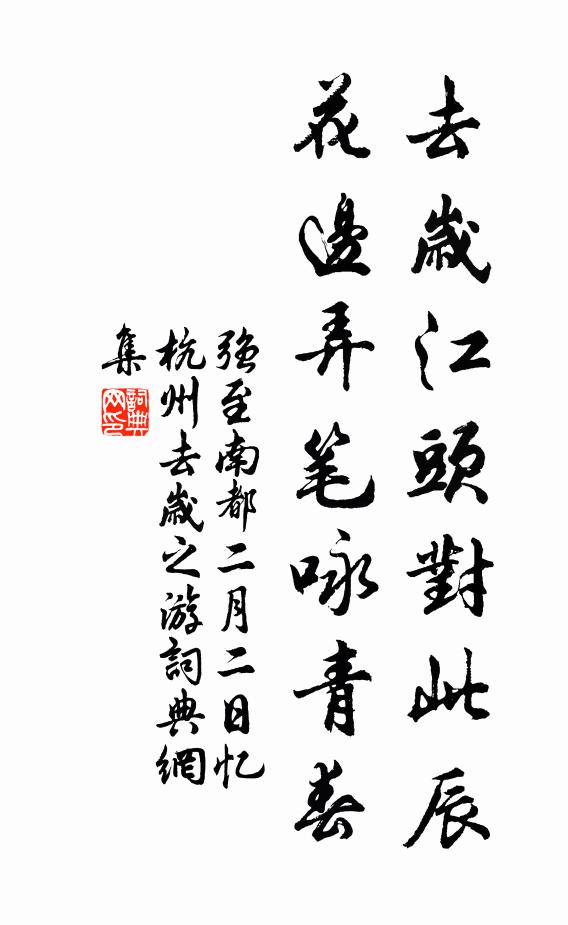 去歲江頭對此辰
花邊弄笔咏青春
强至南都二月二日忆
杭州去歲之游詞典網
集
詞典网印